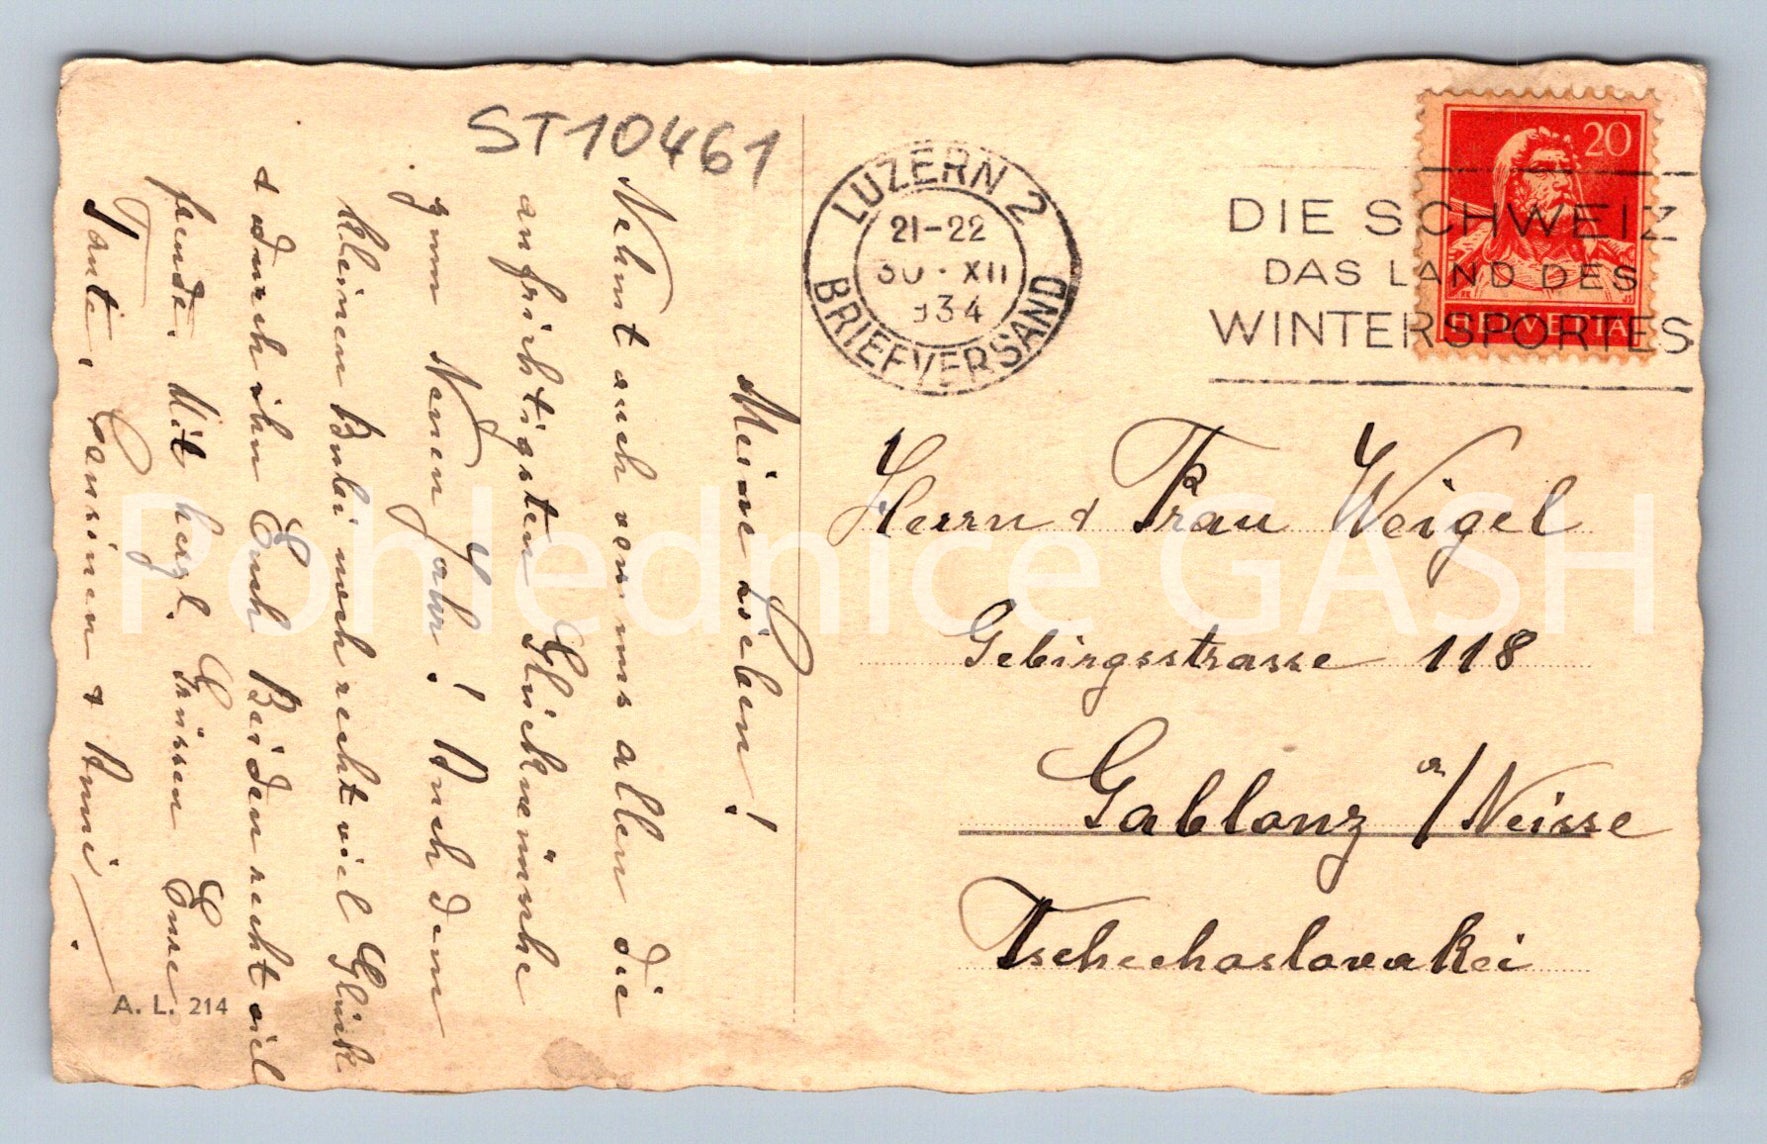 ST10461
Meine Lieben!
Nehmt auch von uns allen die
aufrichtigsten Glückwünsche
zum Neuen Jahr! Auch dem
kleinen Bubi noch recht viel Glück
& durch ihn Euch Beiden recht viel
Freude. Mit herzl. Grüssen Eure
Tante, Cousinen & Anni.
A. L. 214
LUZERN 2
21-22
30. XII
934
BRIEFVERSAND
DIE SCHWEIZ
DAS LAND DES
WINTERSPORTES
20
HELVETIA
Herrn & Frau Weigel
Gebirgsstrasse 118
Gablonz a/Neisse
Tschechoslovakei
Pohlednice GASH